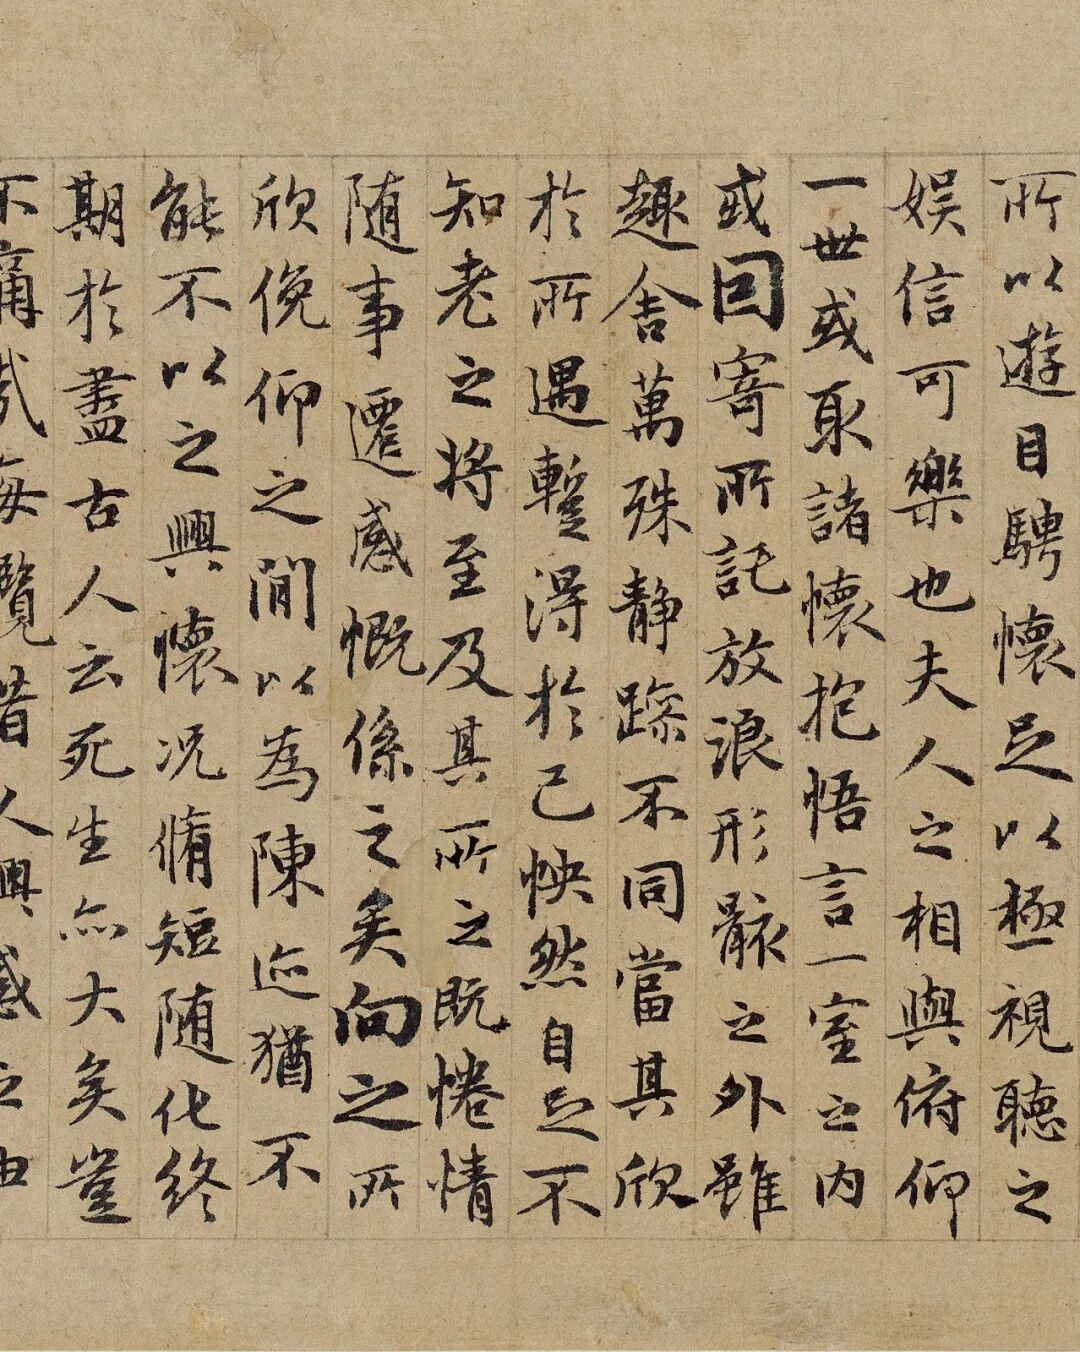 所以遊目騁懷足以極視聽之
娱信可樂也夫人之相與俯仰
一世或取諸懷抱悟言一室之内
或因寄所託放浪形骸之外雖
趣舎萬殊静躁不同當其欣
於所遇暫得於己怏然自足不
知老之将至及其所之既惓情
随事遷感慨係之矣向之所
欣俛仰之閒以為陳迹猶不
能不以之興懷况脩短随化終
期於盡古人云死生亦大矣豈
不痛哉每覽昔人興感之由